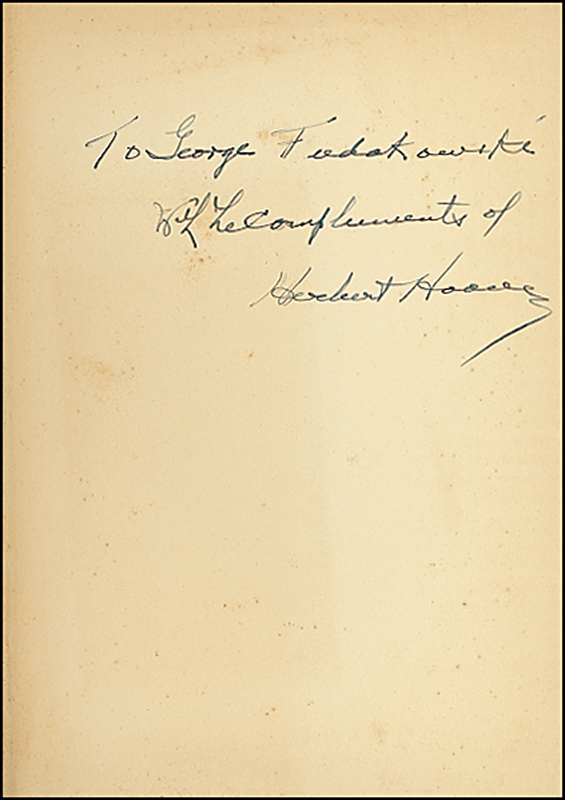 To George Fudakowski
With the Compliments of
Herbert Hoover